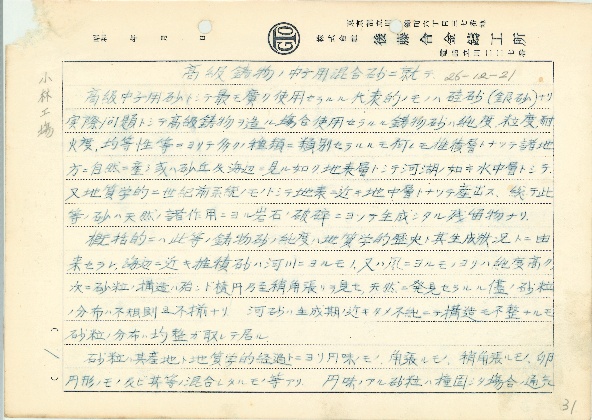 昭和 年 月 日
GTO
株式会社 後藤合金鋳工所
小林工場
高級鋳物ノ中子用混合砂ニ就テ 26-12-21
高級中子用砂トシテ最モ広ク使用セラルル代表的ノモノハ硅砂(銀砂)ナリ
実際問題トシテ高級鋳物ヲ造ル場合使用セラルル鋳物砂ハ純度、粒度、耐
火度、均等性等ニヨリテ多クノ種類ニ類別セラルルモ何レモ堆積層トナリテ諸地
方ニ自然ニ産シ或ハ砂丘及海辺ニ見ル如ク地表層トシテ河湖ノ如キ水中層トシテ
又地質学的ニ世紀前系統ノモノトシテ地表ニ近キ地中層トナリテ産出ス 従テ此
等ノ砂ハ天然ノ諸作用ニヨル岩石ノ破砕ニヨリテ生成シタル残留物ナリ
概括的ニハ此等ノ鋳物砂ノ純度ハ地質学的歴史ト其生成状況トニ由
来セラレ、海辺ニ近キ堆積砂ハ河川ニヨルモノ、又ハ風ニヨルモノヨリハ純度高ク
次ニ砂粒ノ構造ハ殆ンド楕円乃至稍角張リヲ見セ、天然ニ発見セラルル儘ノ砂粒
ノ分布ハ不規則且不揃ナリ 河砂ハ生成期近キタメ不純ニテ構造モ不整ナルモ
砂粒ノ分布ハ均整ガ取レテ居ル
砂粒ハ其産地ト地質学的経過トニヨリ円味ノモノ、角張ルモノ、稍角張ルモノ、卵
円形ノモノ及ビ其等ノ混合シタルモノ等アリ 円味ノアル砂粒ハ搗固シタ場合ノ通気
( 1 )
31